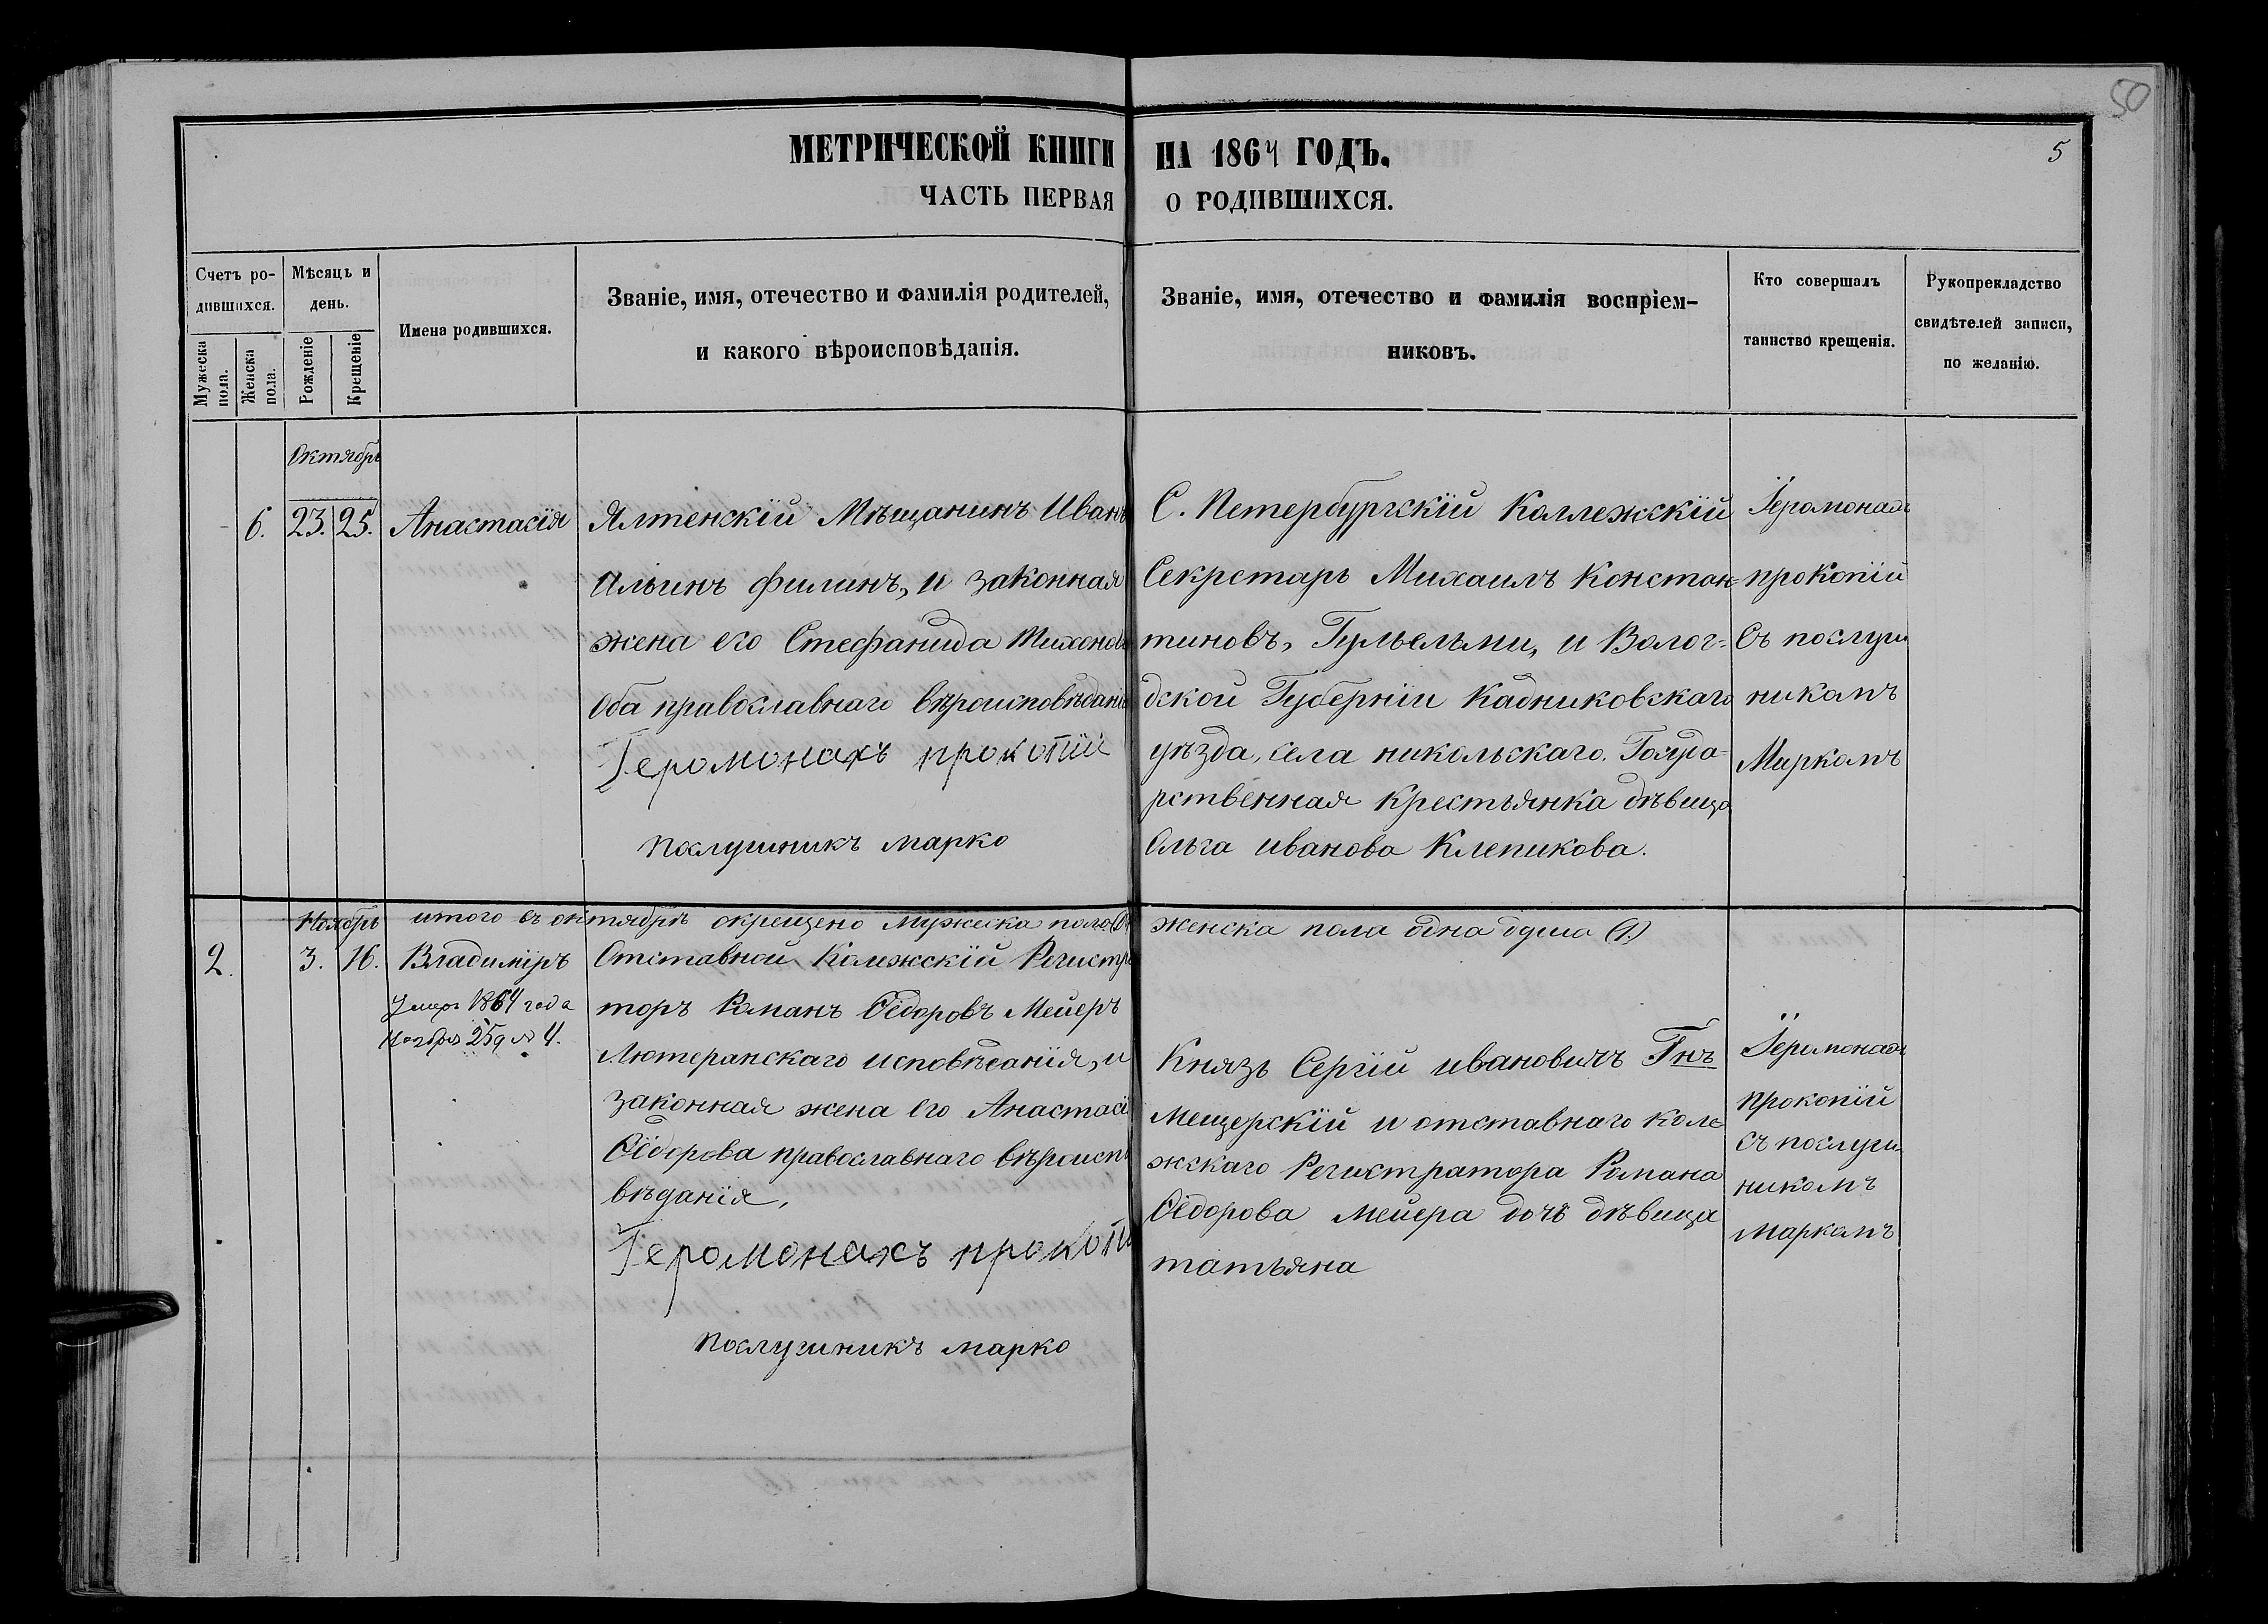 50
МЕТРИЧЕСКОЙ КНИГИ НА 1864 ГОДЪ.
5
ЧАСТЬ ПЕРВАЯ О РОДИВШИХСЯ.
Счетъ родившихся.
Мужеска пола.
Женска пола.
Мѣсяцъ и день.
Рожденіе
Крещеніе
Имена родившихся.
Званіе, имя, отечество и фамилія родителей,
и какого вѣроисповѣданія.
Званіе, имя, отечество и фамилія воспріем-
никовъ.
Кто совершалъ
таинство крещенія.
Рукопрекладство
свидѣтелей записи,
по желанію.
Октябрь
6. 23. 25. Анастасія
Ялтенскій Мѣщанинъ Иванъ
Ильинъ Филинъ, и законная
жена его Стефанида Тихонова
Оба православнаго вѣроисповѣданія
Іеромонахъ прокопій
послушникъ марко
С. Петербургскій Коллежскій
Секретарь Михаилъ Констан=
тиновъ, Гульельми, и Волог=
дской Губерніи Кадниковскаго
уѣзда, села никольскаго. Госуда-
рственная крестьянка дѣвица
Ольга иванова Клепикова.
Іеромонахъ
прокопій
Съ послуш
никомъ
Маркомъ
Ноябрь
итого въ октябрѣ окрещено мужеска пола (0) женска пола одна душа (1.)
2. 3. 16. Владиміръ
Умеръ 1864 года
Ноября 25 д № 4.
Отставной Колежскій Регистра
торъ Романъ Ѳёдоровъ Мейеръ
Лютеранскаго исповѣданія, и
законная жена его Анастасія
Ѳёдорова православнаго вѣроиспо
вѣданія,
Іеромонахъ прокопі
послушникъ марко
Князь Сергій ивановичъ Гнъ
Мещерскій и отставнаго коле
жскаго Регистратора Романа
Ѳёдорова мейера дочь дѣвица
татьяна
Іеромонахъ
прокопій
съ послуш
никомъ
маркомъ